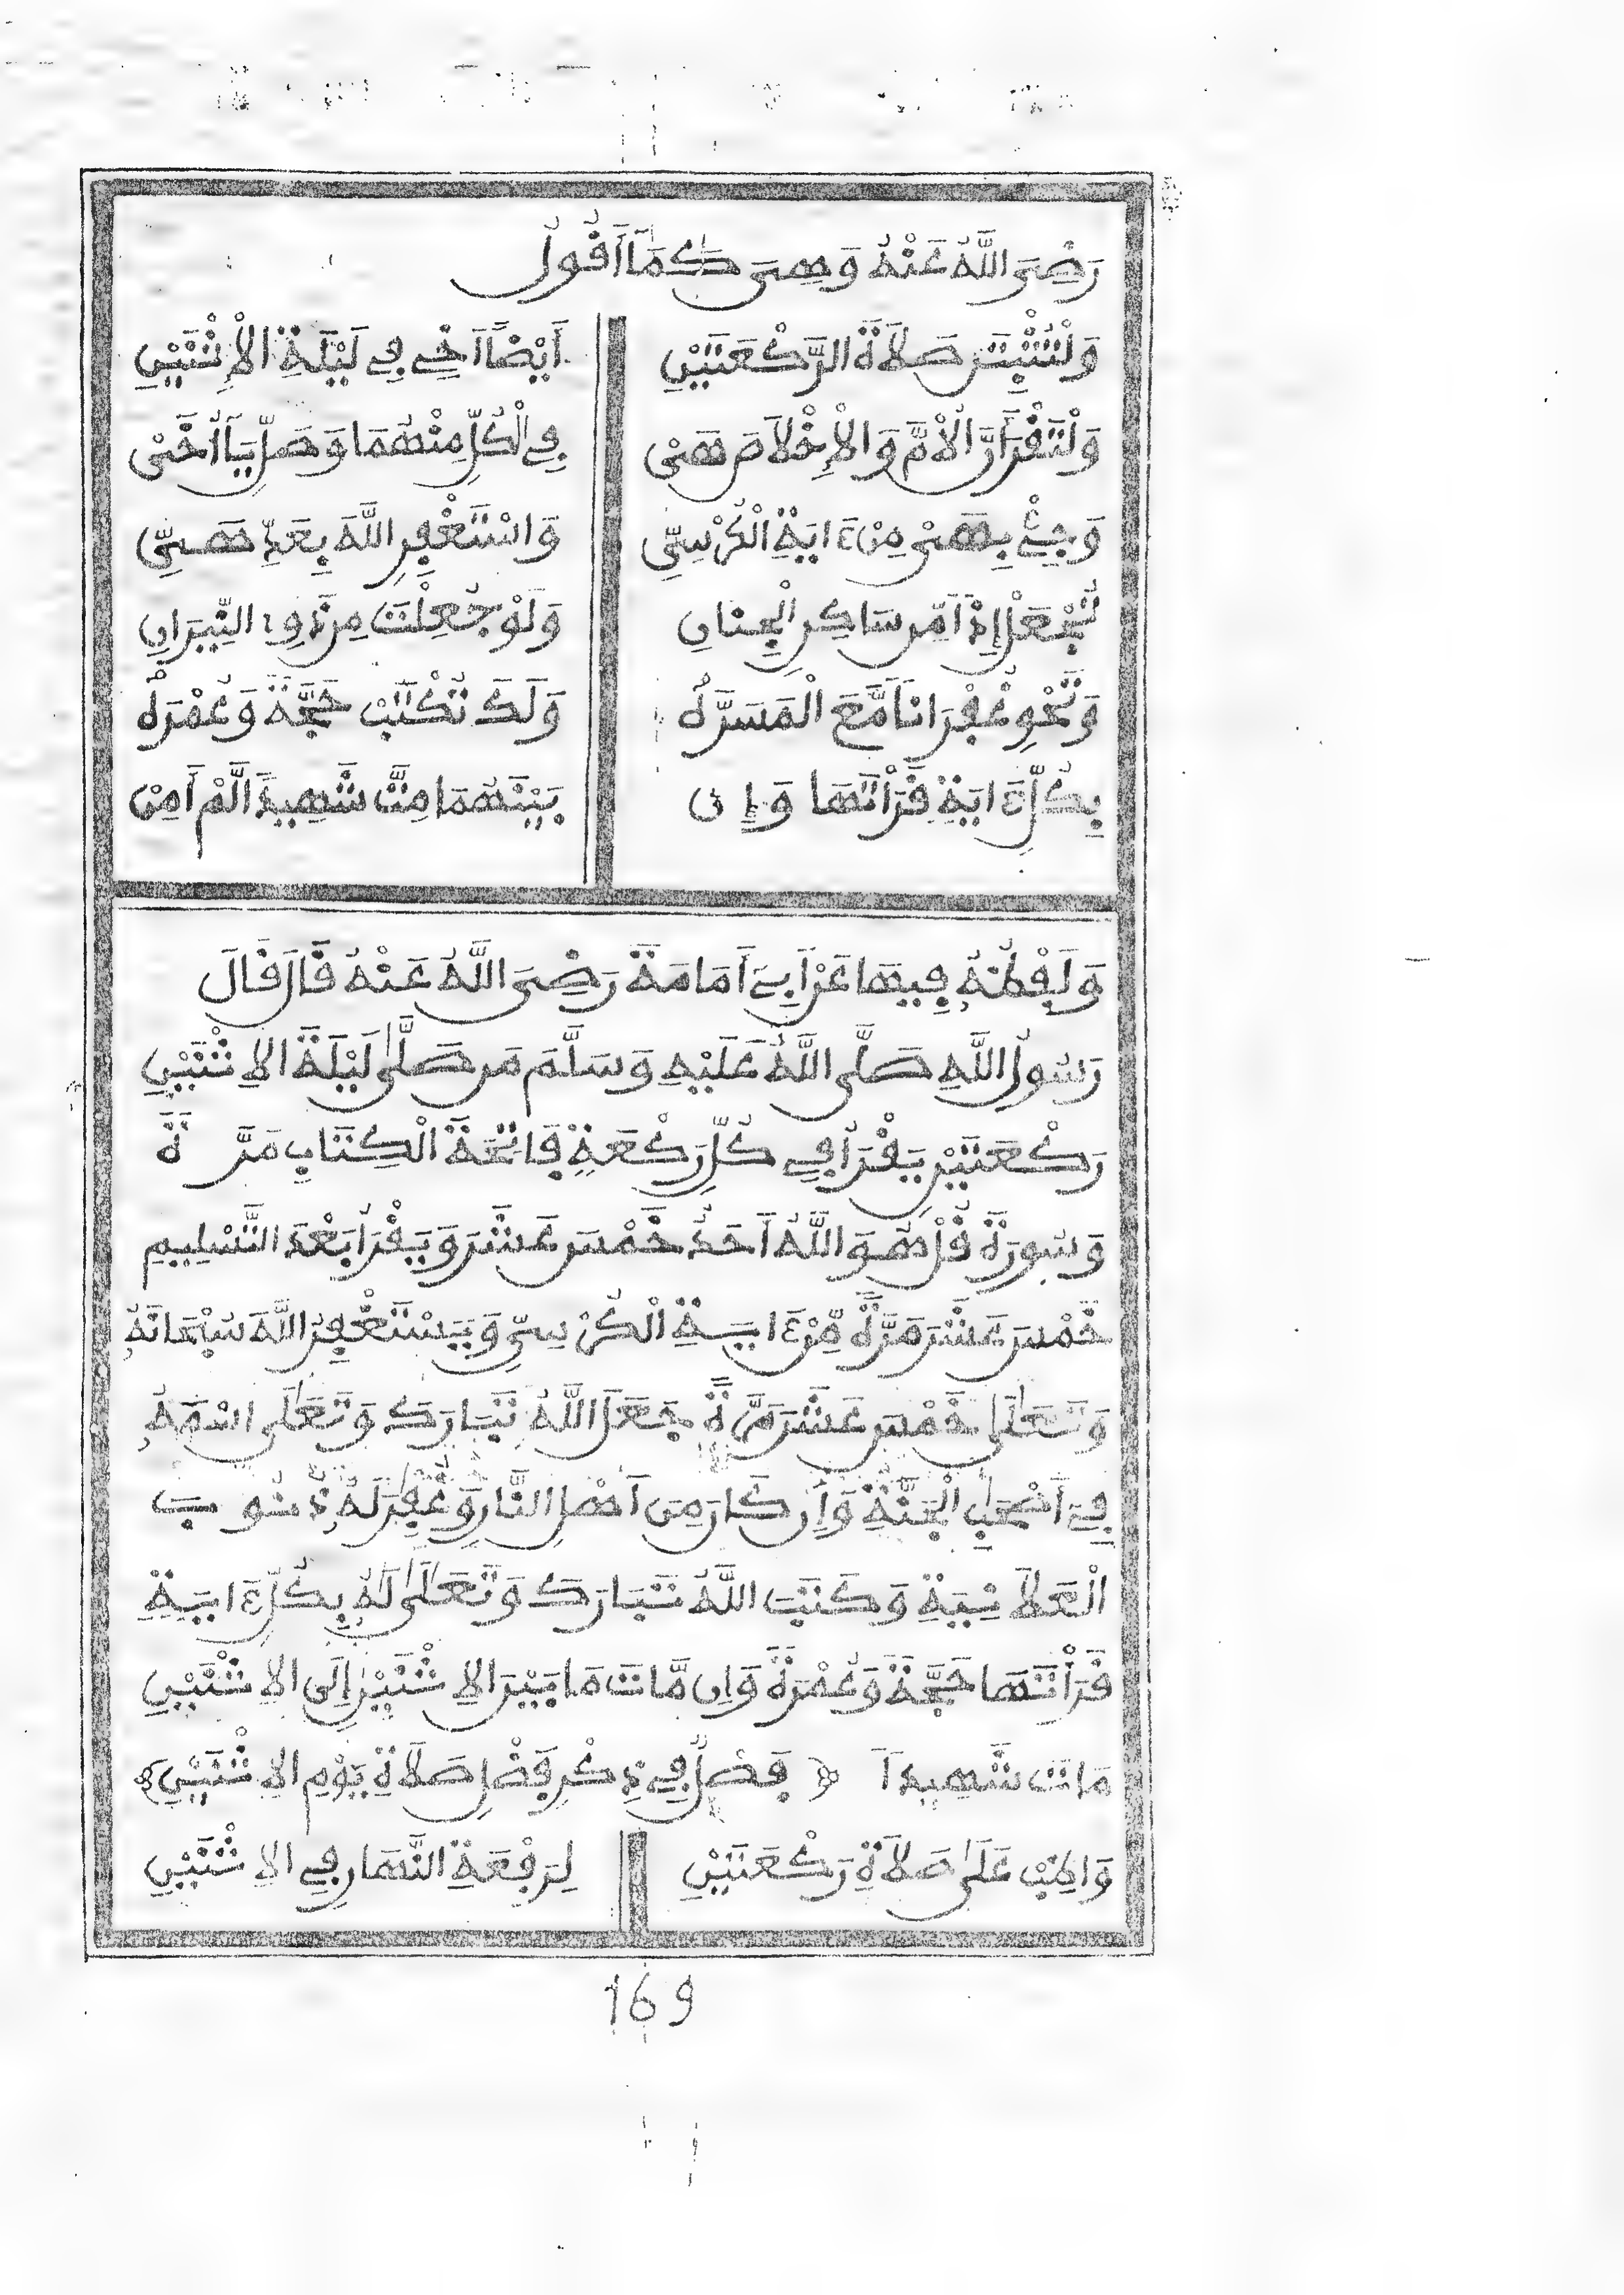 رَضِيَ اللَّهُ عَنْهُ وَهِيَ كَمَا أَقُولُ
وَلْتُثْبِتَنْ صَلَاةَ الرَّكْعَتَيْنِ أَيْضًا أَخِي فِي لَيْلَةِ الْإِثْنَيْنِ
وَلْتَقْرَأَنَّ الْأُمَّ وَالْإِخْلَاصَ هَىْ فِي الْكُلِّ مِنْهُمَا وَصَلِّ يَا أُخَىْ
وَجِئْ بِهَىْ مِنْ ءَايَةِ الْكُرْسِيِّ وَاسْتَغْفِرِ اللَّهَ بِعَدِّ هَىِّ
تُجْعَلْ إِذًا مِّن سَاكِنِ الْجِنَانِ وَلَوْ جُعِلْتَ مِن ذَوِي النِّيرَانِ
وَتَحْوِ غُفْرَانًا مَّعَ الْمَسَرَّهْ وَلَكَ تُكْتَبْ حَجَّةٌ وَعُمْرَهْ
بِكُلِّ ءَايَةٍ قَرَأْتَهَا وَإِن بَيْنَهُمَا مِتَّ شَهِيدًا لَّمْ أَمِنْ
وَلَفْظُهُ فِيهَا عَنْ أَبِي أُمَامَةَ رَضِيَ اللَّهُ عَنْهُ قَالَ قَالَ
رَسُولُ اللَّهِ صَلَّى اللَّهُ عَلَيْهِ وَسَلَّمَ مَن صَلَّى لَيْلَةَ الِاثْنَيْنِ
رَكْعَتَيْنِ يَقْرَأُ فِي كُلِّ رَكْعَةٍ فَاتِحَةَ الْكِتَابِ مَرَّةً
وَسُورَةَ قُلْ هُوَ اللَّهُ أَحَدٌ خَمْسَ عَشْرَ وَيَقْرَأُ بَعْدَ التَّسْلِيمِ
خَمْسَ عَشْرَ مَرَّةً مِّنْ ءَايَةِ الْكُرْسِيِّ وَيَسْتَغْفِرُ اللَّهَ سُبْحَانَهُ
وَتَعَالَى خَمْسَ عَشْرَ مَرَّةً جَعَلَ اللَّهُ تَبَارَكَ وَتَعَالَى اسْمَهُ
فِي أَصْحَابِ الْجَنَّةِ وَإِن كَانَ مِنَ أَهْلِ النَّارِ وَغُفِرَ لَهُ ذُنُوبَ
الْعَلَانِيَةِ وَكَتَبَ اللَّهُ تَبَارَكَ وَتَعَالَى لَهُ بِكُلِّ ءَايَةٍ
قَرَأَتَهَا حَجَّةً وَعُمْرَةً وَإِن مَّاتَ مَا بَيْنَ الِاثْنَيْنِ إِلَى الِاثْنَيْنِ
مَاتَ شَهِيدًا فَصْلٌ فِي ذِكْرِ فَضْلِ صَلَاةِ يَوْمِ الِاثْنَيْنِ
وَاظِبْ عَلَى صَلَاةِ رَكْعَتَيْنِ لِرَفْعَةِ النَّهَارِ فِي الِاثْنَيْنِ
169